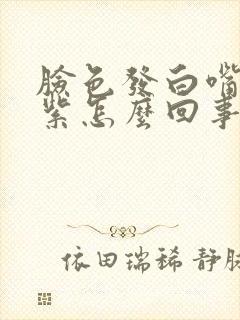 臉色發白嘴
紫怎麼回事
依田瑞稀 靜脈